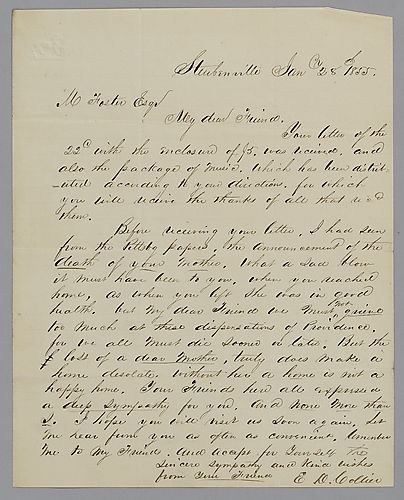 Steubenville Jany 28th 1855.
M Foster Esqr
My dear Friend.
Your letter of the
22d with the inclosure of $5. was received, and
also the package of music. Which has been distrib-
uted according to your directions, for which
you will receive the thanks of all that recd
them.
Before receiving your letter, I had seen
from the Pittbg papers, the announcement of the
death of your Mother. What a sad blow
it must have been to you, when you reached
home, as when you left she was in good
health. but My dear Friend we must not grieve
too much at these dispensations of Providence.
for we all must die sooner or later. But the
loss of a dear Mother, truly does make a
home desolate. without her a home is not a
happy home. Your Friends here all expressed
a deep sympathy for you, and none more than
I. I hope you will visit us soon again, let
me hear from you as often as convenient, remember
me to My Friend. And accept for Yourself the
sincere sympathy and kind wishes
from Your Friend E. D. Collier